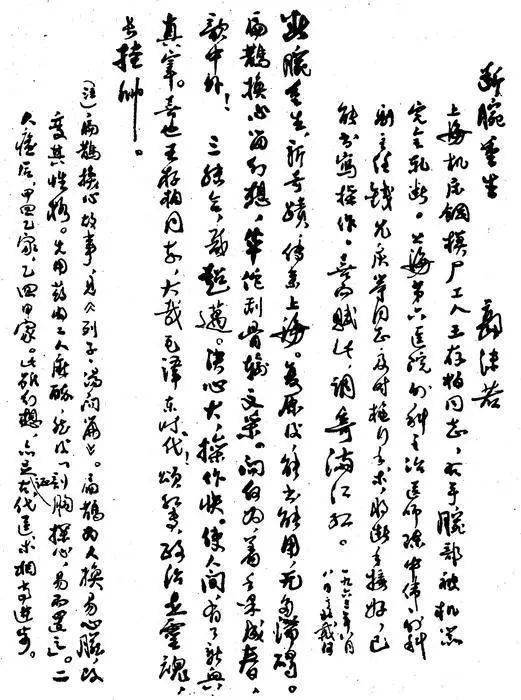 断腕重生 郭沫若
上海机床钢模厂工人王存柏同志,右手腕部被机器
完全轧断。上海第六医院外科主治医师陈中伟、外科
副主任钱允庆等同志及时施行手术,将断手接好,已
能书写操作。喜而赋此,调寄满江红。
一九六三年八月
八日
断腕重生,新奇蹟传来上海。复原后能书能用,无多滞碍。
扁鹊换心当幻想,华佗刮骨输文采。问何为着手果成春,
歌中外! 三结合,敢超迈。决心大,操作快。使人间有了新兴
真宰。喜也王存柏同志,大哉毛泽东时代!颂红专,政治是灵魂,
长挂帅。
(注)扁鹊换心故事,见《列子·汤问篇》。扁鹊为人换易心脏,改
变其性格。先用药 二人麻醉,然后“剖胸探心,易而置之”。二
人癒后,甲回乙家,乙回甲家。此虽幻想,亦足 代医术相